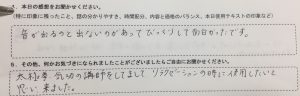 5. 本日の感想をお聞かせください。
(特に印象に残ったこと、話の分かりやすさ、時間配分、内容と価格のバランス、本日使用テキストの印象など)
音が出るのと出ないのがあってびっくりして面白かったです。
6. その他、何かお気づきになられましたことがございましたらご自由にお聞かせください。
太極拳 気功の講師をしてまして リラクゼーションの時に使用したいと
思い来ました。